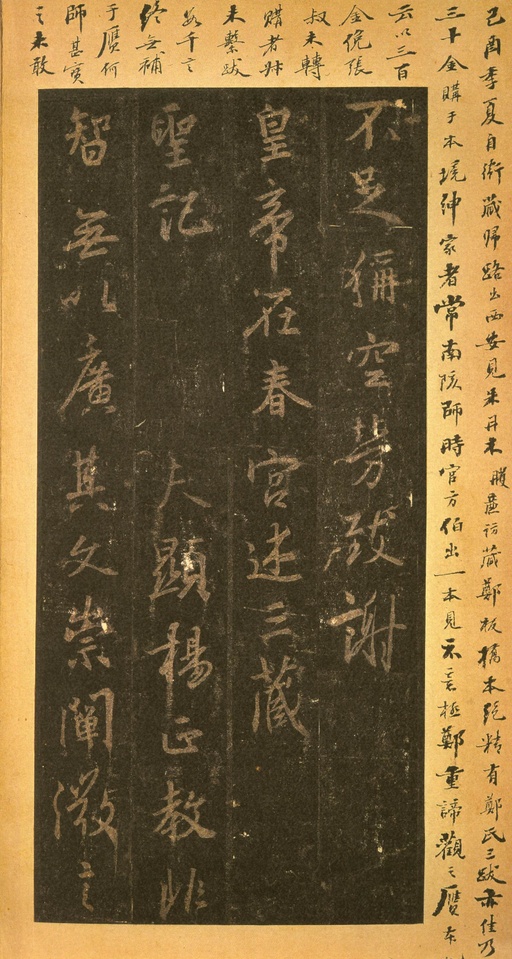 己酉季夏自衛藏歸路出西安見朱丹木
藏鄭板橋本絕精有鄭氏三跋亦佳乃
三千金購于本境紳家者常南陔師時官方伯出一本見示云極鄭重諦觀之贋本
云以三百
金從張
叔未轉
購者時
未繫跋
數千言
終無補
于贋何
師甚寶
之未敢
不足稱空勞致謝
皇帝在春宮述三藏
聖記
夫顯揚正教非
智無以廣其文崇闡微言